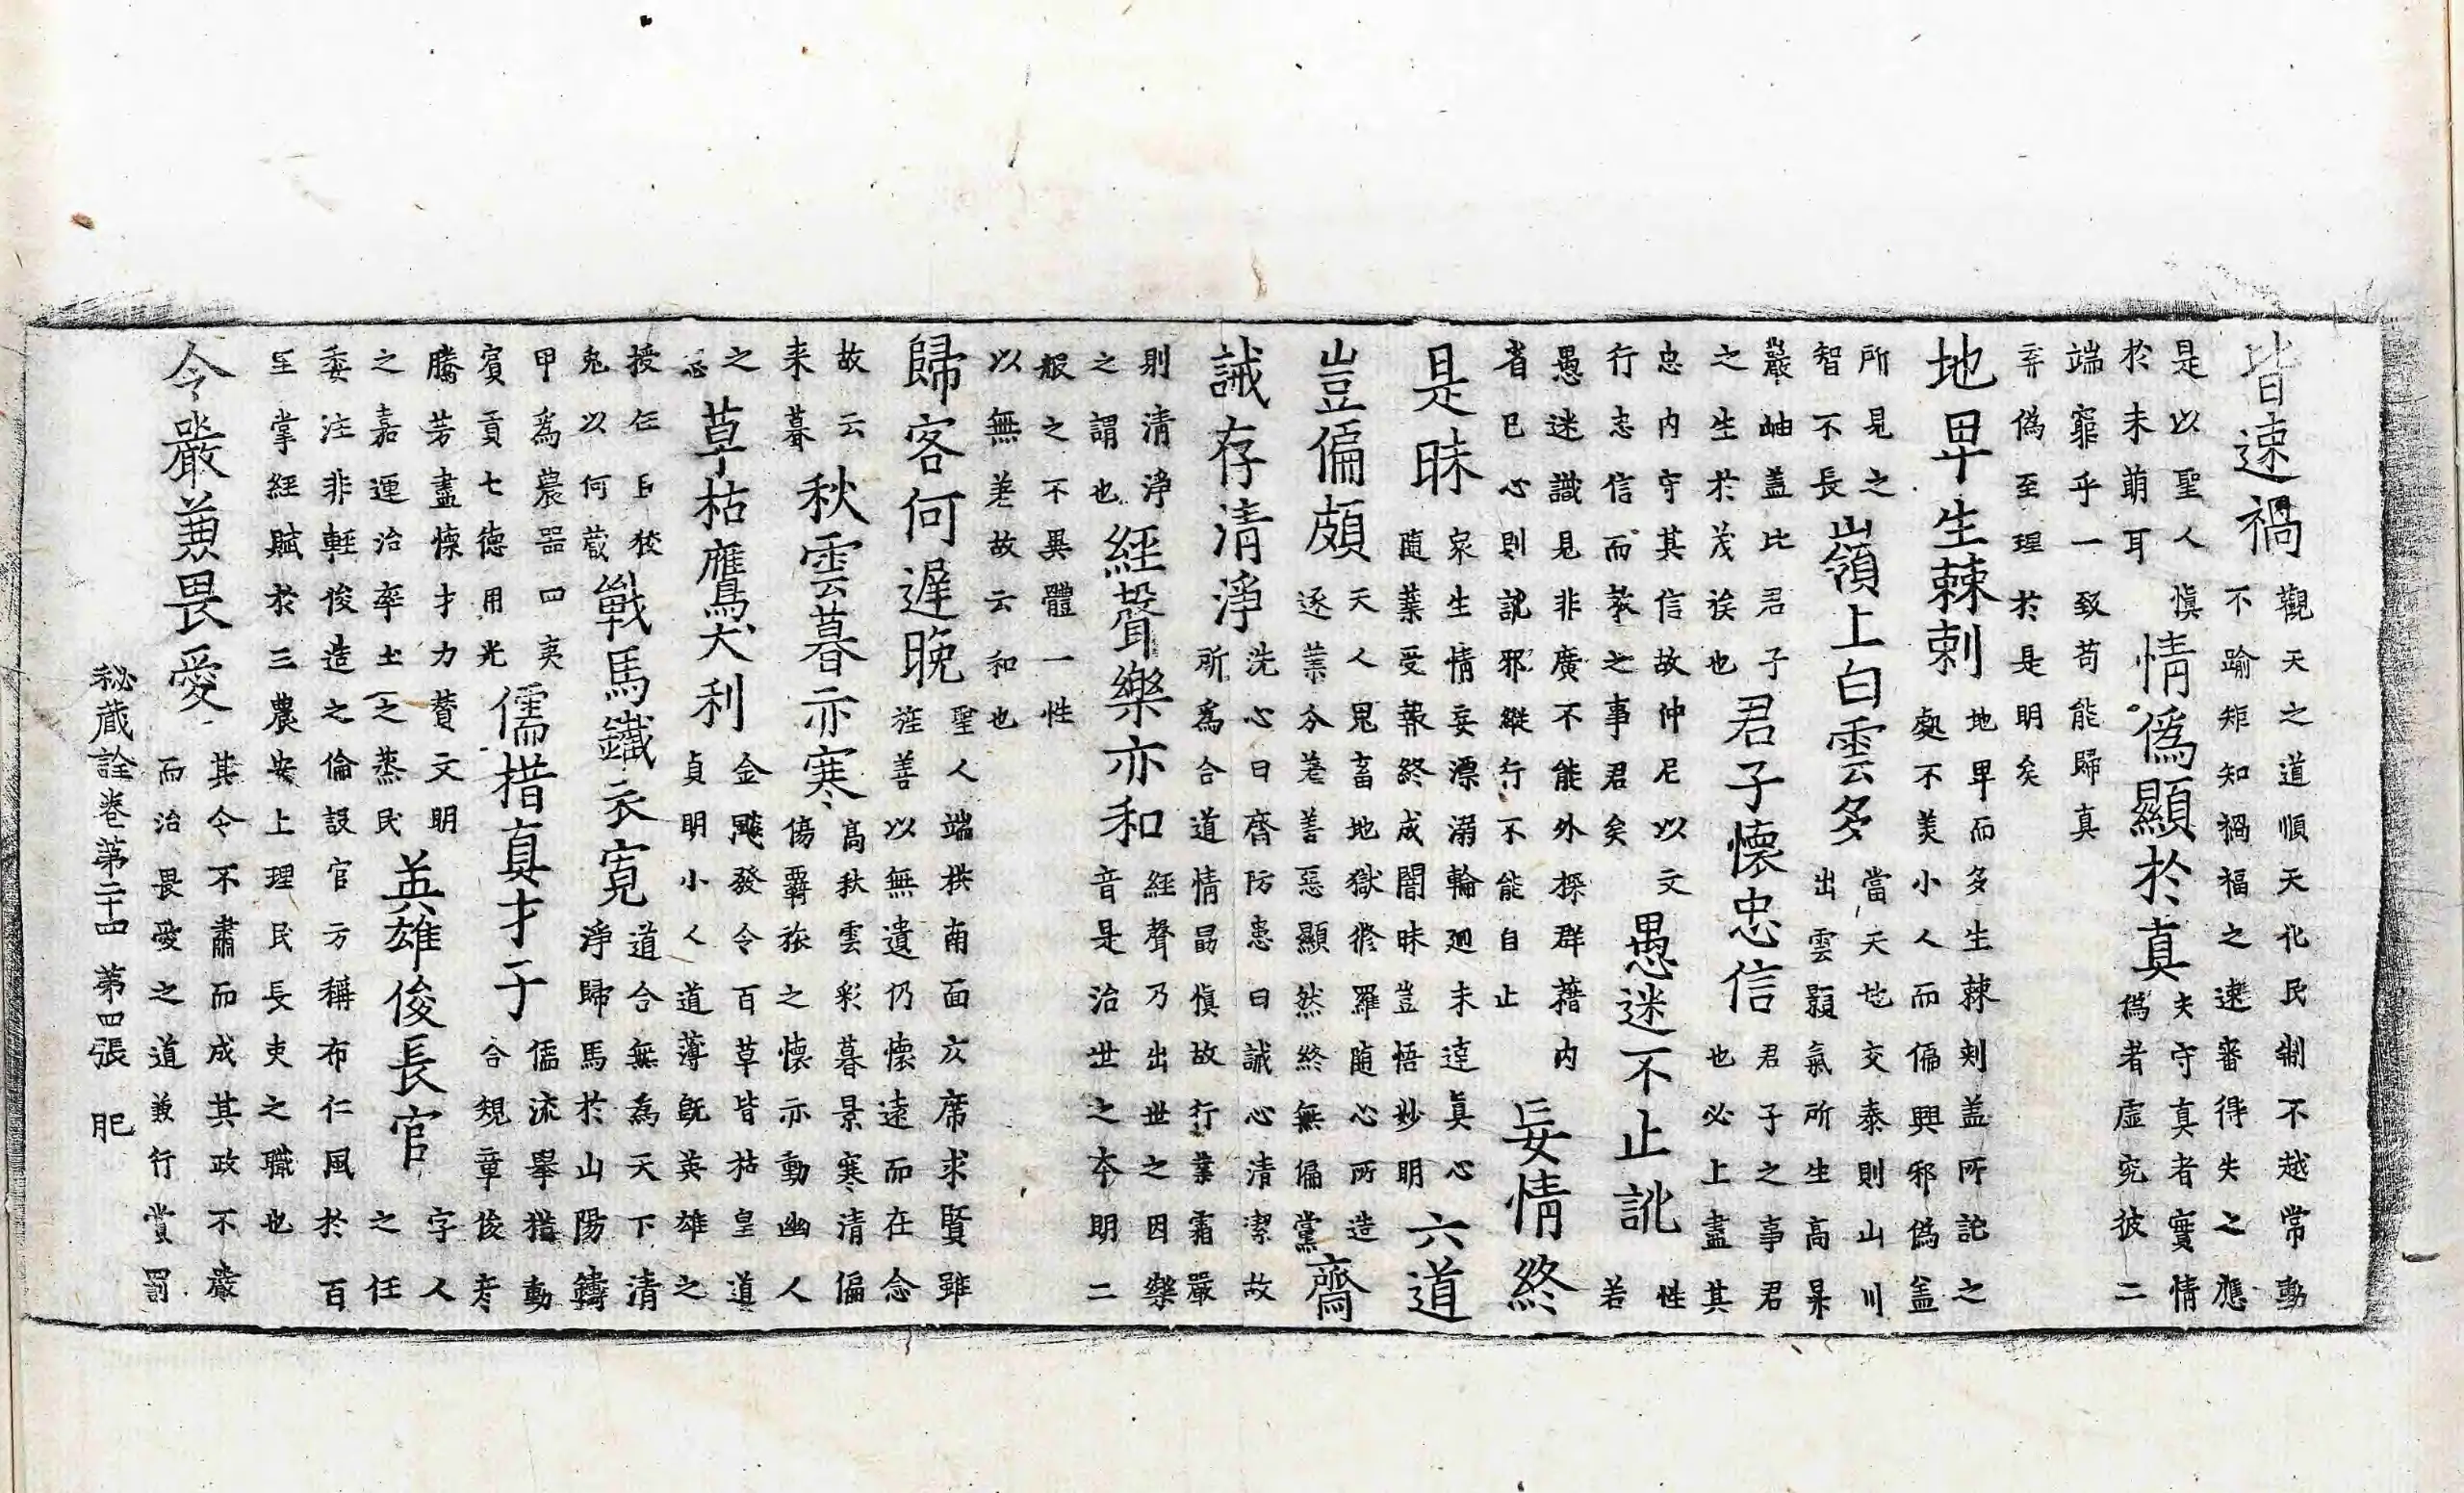 皆速禍
觀天之道順天化民制不越常動
不踰矩知禍福之速審得失之應
是以聖人慎
於未萌耳
情偽顯於真
夫守真者實情
偽者虛究彼二
端窮乎一致苟能歸真
弃偽至理於是明矣
地卑生棘刺
地卑而多生棘刺盖所詑之
處不美小人而偏興邪偽盖
所見之
智不長
嶺上白雲多
當天地交泰則山川
出雲顥氣所生高杲
巖岫盖比君子
之生於茂族也
君子懷忠信
君子之事君
也必上盡其
忠內守其信故仲尼以文
行忠信而教之事君矣
愚迷不止訛
性
若
愚迷識見非廣不能外探群藉內
省己心則訛邪縱行不能自止
妄情終
是昧
衆生情妄漂溺輪廻未達真心
隨業受報終成闇昧豈悟妙明
六道
豈偏頗
天人鬼畜地獄修羅隨心所造
逐業分差善惡顯然終無偏黨
齋
誡存清淨
洗心曰齋防患曰誡心清潔故
所為合道情勗慎故行業霜嚴
則清淨
之謂也
經聲樂亦和
經聲乃出世之因樂
音是治世之本明二
般之不異體一性
以無差故云和也
歸客何遲晚
聖人端拱南面仄席求賢雖
旌善以無遺仍懷遠而在念
故云
来暮
秋雲暮亦寒
高秋雲彩暮景寒清偏
傷羇旅之懷亦動幽人
之
志
草枯鷹犬利
金飈發令百草皆枯皇道
貞明小人道薄旣英雄之
授任臣狡
兔以何藏
戰馬鐵衣寬
道合無為天下清
淨歸馬於山陽鑄
甲為農器四夷
賓貢七德用光
儒措真才子
儒流舉措動
合規章俊彥
騰芳盡懷才力賛文明
之嘉運治率土之蒸民
英雄俊長官
字人
之任
委注非輕俊造之倫設官方稱布仁風於百
里掌經賦於三農安上理民長吏之職也
令嚴兼畏愛
其令不肅而成其政不嚴
而治畏愛之道兼行賞罰
秘藏詮卷第二十四 第四張 肥